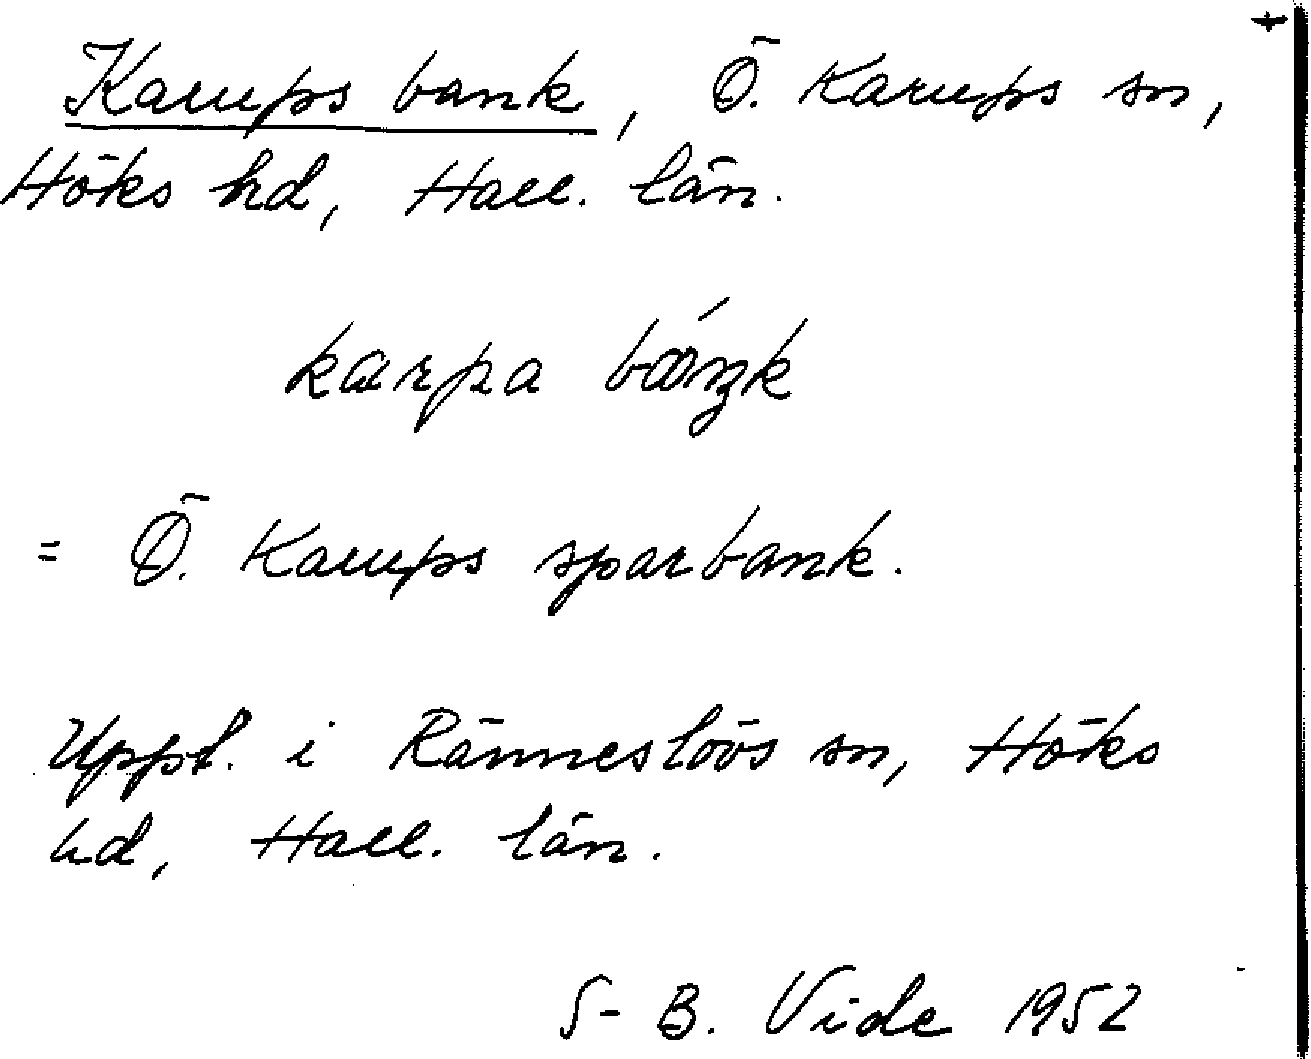 Karups bank, Ö. Karups sn,
Höks hd, Hall. län.
karpa
= Ö. Karups sparbank.
Uppt. i Ränneslövs sn, Höks
hd, Hall. län.
S-B. Vide 1952